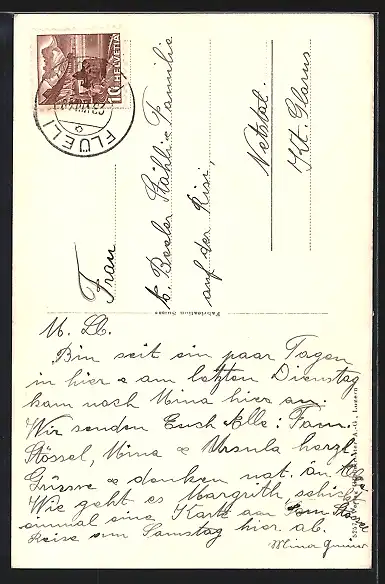 HELVETIA
10
FLÜELI
Frau
K. Beeler Stähli & Familie
auf der Risi,
Netstal.
Kt. Glarus
Fabrication Suisse
M. Lb.
Bin seit ein paar Tagen
in hier & am letzten Dienstag
kam noch Mina hier an.
Wir senden Euch Alle: Fam.
Stössel, Mina & Ursula herzl.
Grüsse & denken nat. an
Wie geht es Margrith, schickt
einmal eine Karte an
Reise am Samstag hier ab.